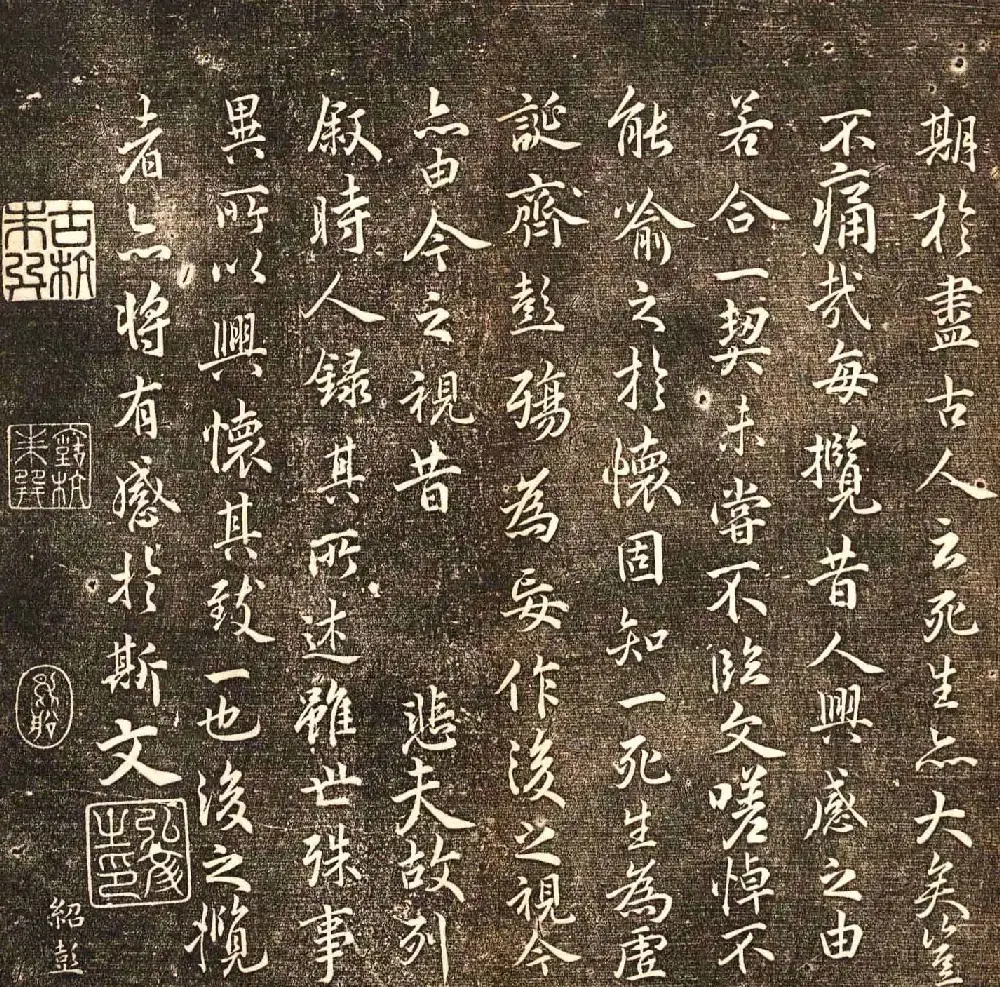 期於盡古人云死生亦大矣豈
不痛哉每攬昔人興感之由
若合一契未嘗不臨文嗟悼不
能喻之於懷固知一死生為虛
誕齊彭殤為妄作後之視今
亦由今之視昔 悲夫故列
叙時人錄其所述雖世殊事
異所以興懷其致一也後之攬
者亦將有感於斯文
弘文之印
紹彭